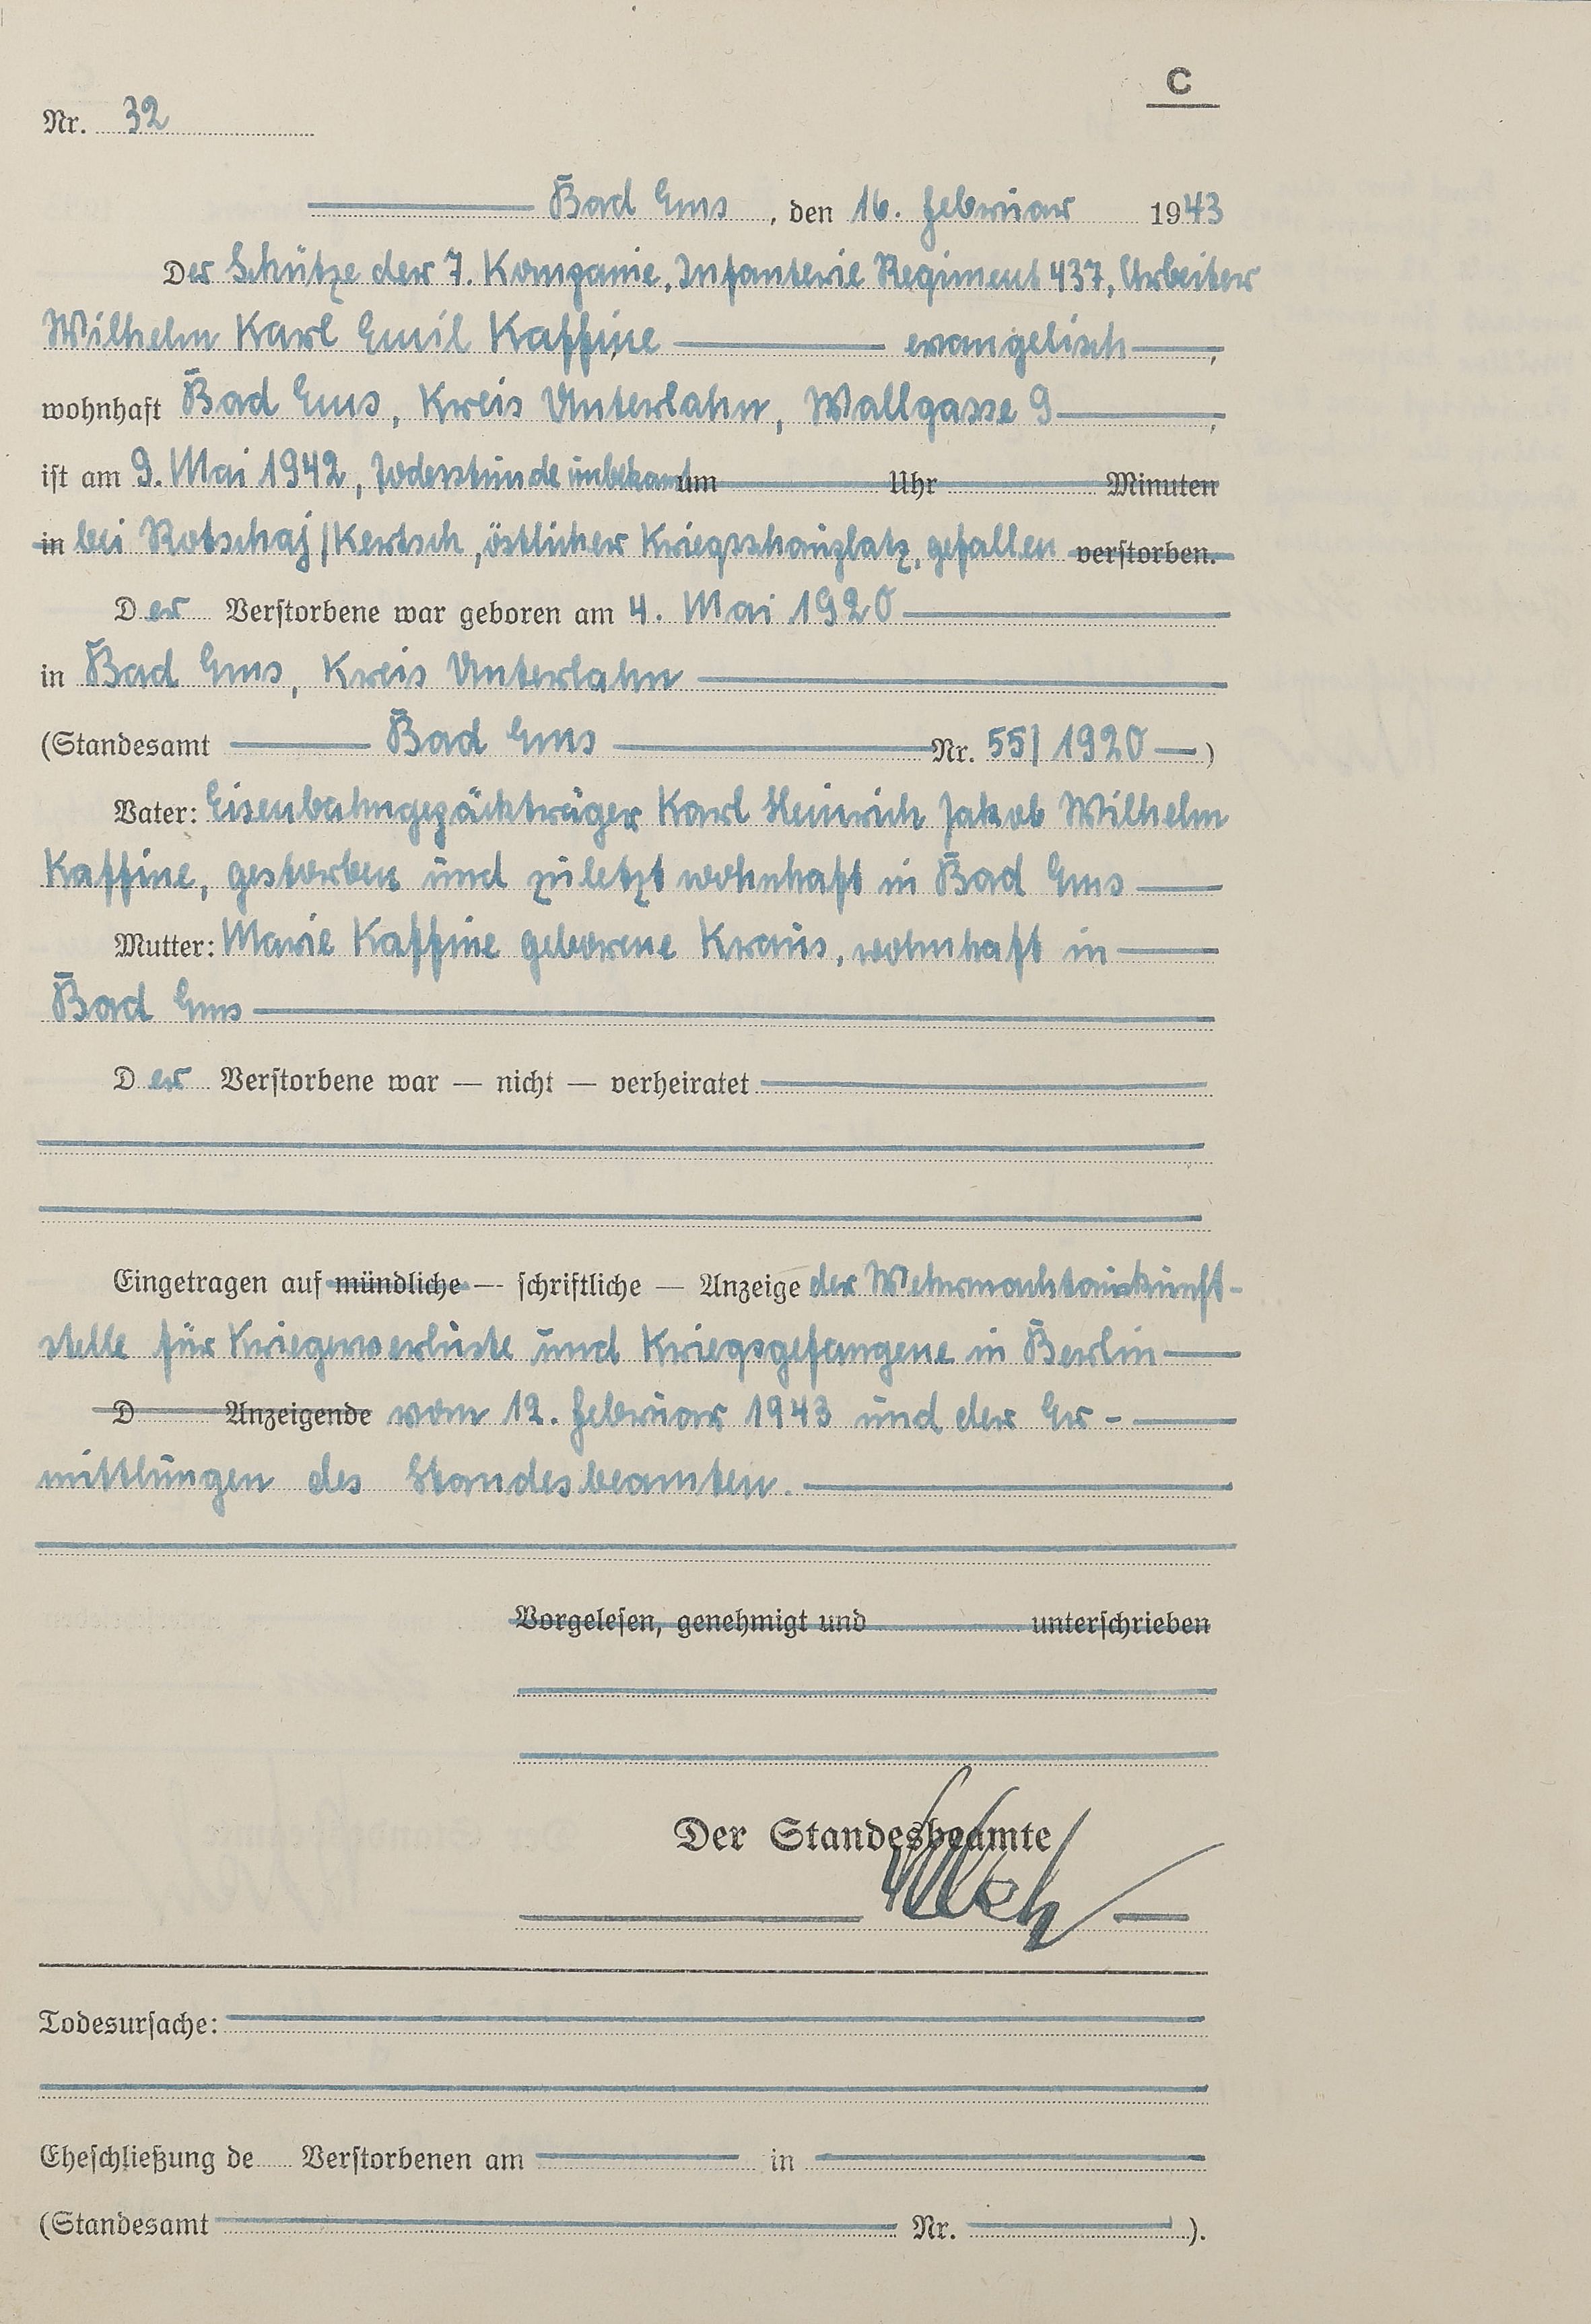 C
Nr. 32
Bad Ems, den 16. Februar 1943
Der Schütze der 7. Kompanie, Infanterie Regiment 437, Arbeiter
Wilhelm Karl Emil Kaffine evangelisch,
wohnhaft Bad Ems, Kreis Unterlahn, Wallgasse 9,
ist am 9. Mai 1942, Todesstunde unbekannt um Uhr Minuten
in bei Rotschaj/Kertsch, östlicher Kriegsschauplatz, gefallen verstorben.
Der Verstorbene war geboren am 4. Mai 1920
in Bad Ems, Kreis Unterlahn
(Standesamt Bad Ems Nr. 55/1920)
Vater: Eisenbahngepäckträger Karl Heinrich Jakob Wilhelm
Kaffine, gestorben und zuletzt wohnhaft in Bad Ems
Mutter: Marie Kaffine geborene Kraus, wohnhaft in
Bad Ems
Der Verstorbene war — nicht — verheiratet
Eingetragen auf mündliche — schriftliche — Anzeige der Wehrmachtauskunft-
stelle für Kriegerverluste und Kriegsgefangene in Berlin
D Anzeigende vom 12. Februar 1943 und der Er-
mittlungen des Standesbeamten.
Vorgelesen, genehmigt und unterschrieben
Der Standesbeamte
Todesursache:
Eheschließung de Verstorbenen am in
(Standesamt Nr. ).